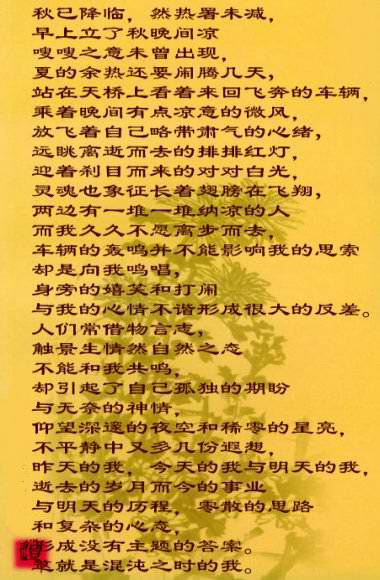 秋已降临，然热署未减，
早上立了秋晚间凉
嗖嗖之意未曾出现，
夏的余热还要闹腾几天，
站在天桥上看着来回飞奔的车辆，
乘着晚间有点凉意的微风，
放飞着自己略带肃气的心绪，
远眺离逝而去的排排红灯，
迎着刹目而来的对对白光，
灵魂也象征长着翅膀在飞翔，
两边有一堆一堆纳凉的人
而我久久不愿离步而去，
车辆的轰鸣并不能影响我的思索
却是向我鸣唱，
身旁的嬉笑和打闹
与我的心情不谐形成很大的反差。
人们常借物言志，
触景生情然自然之态
不能和我共鸣，
却引起了自己孤独的期盼
与无奈的神情，
仰望深邃的夜空和稀零的星亮，
不平静中又多几份遐想，
昨天的我，今天的我与明天的我，
逝去的岁月而今的事业
与明天的历程，零散的思路
和复杂的心态，
形成没有主题的答案。
这就是混沌之时的我。